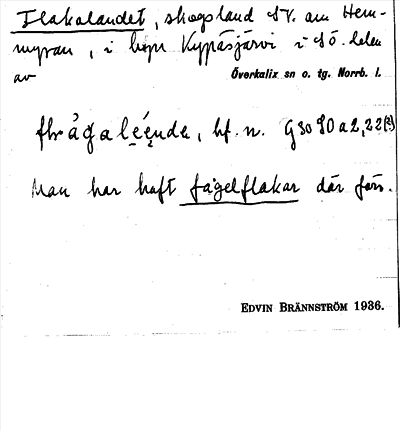 Flakalandet, skogsland SV. om Hem-
myran, i byn Kypåsjärvi i sö. delen
av Överkalix sn o. tg. Norrb. l.
bf. n. G 30 90 a 2, 22 (?)
Man har haft fågelflakar där förr.
EDVIN BRÄNNSTRÖM 1936.